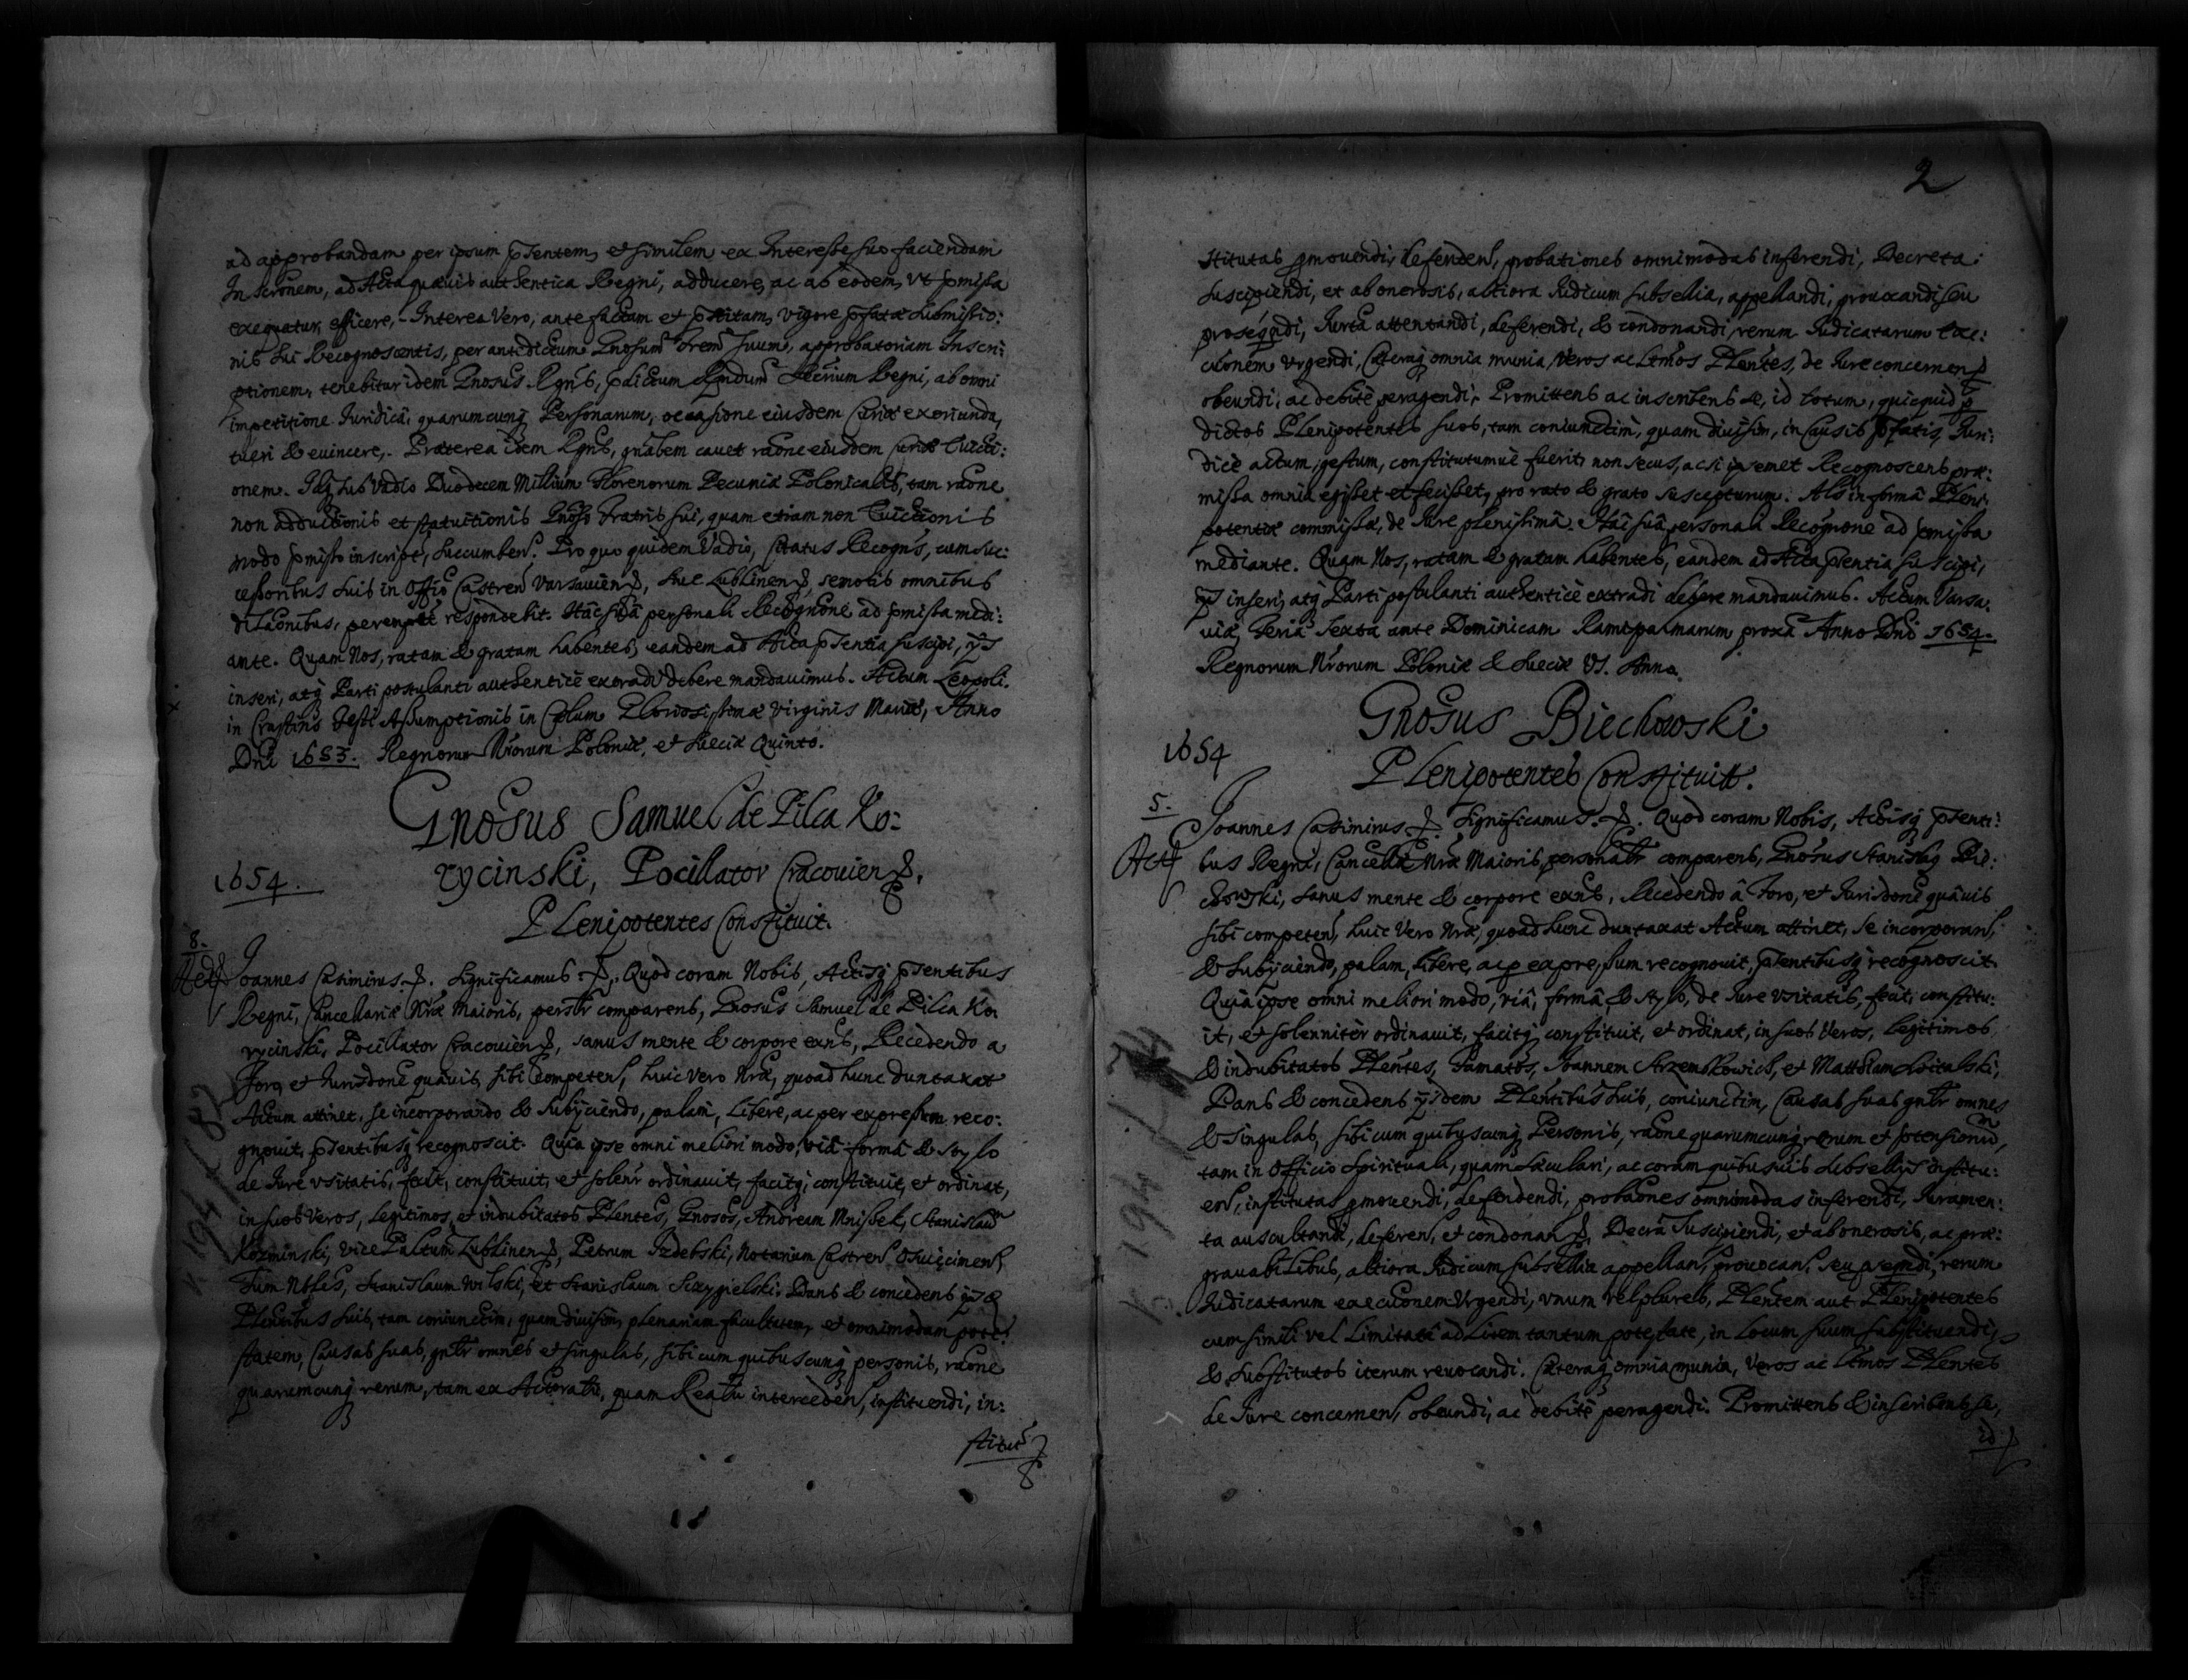 ad approbandam per ipsum pntem, et similem ex Interesse suo faciendam
Inscronem, ad Acta quævis authentica Regni, adducere, ac ab eodem, vt pmissa
exequatur, efficere,- Interea Vero, ante factam et pstitam, vigore pfatæ submissio:
nis sui Recognoscentis, per antedictum Gnosum Frem suum, approbatoriam Inscri:
ptionem, tenebitur idem Gnosus Rgns, pdictum Rndum Regni, ab omni
impetitione Iuridica, quarumcunq Personarum, occasione eiusdem Curiæ exoriunda,
tueri & euincere,. Præterea idem Rgns, gnalem cauet raone eiusdem Curiæ Euicti:
onem. Idq sub Vadio Duodecem Millium Florenorum Pecuniæ Polonicalis, tam raone
non adductionis et statuitionis Gnosi Fratris sui, quam etiam non Euictionis
modo pmisso inscript, succumben. Pro quo quidem Vadio, Citatus Recogns, cum suc:
cessoribus suis in Offio Castren Varsauien, siue Lublinen, semotis omnibus
dilaonibus, perempte respondebit. Hac sua personali Recognone ad pmissa medi:
ante. Quam Nos, ratam & gratam habentes, eandem ad Acta pntia suscipi, ijs
inseri, atq Parti postulanti authentice extradi debere mandauimus. Actum Leopoli.
in Crastino Festi Assumptionis in Cælum Gloriosissimæ Virginis Mariæ, Anno
Dni 1653. Regnorum Nrorum Poloniæ, et Sueciæ Quinto.
Gnosus Samuel de Pilca Ko:
rycinski, Pocillator Cracouien.
1654.
Plenipotentes Constituit.
8.
Joannes Casimirus. Significamus. Quod coram Nobis, Actisq pntibus
Regni, Cancellariæ Nræ Maioris, persolr comparens, Gnosus Samuel de Pilca Ko
rycinski, Pocillator Cracouien, sanus mente & corpore exns, Recedendo a
Foro, et Iurisdone quauis, sibi competen, huic Vero Nræ, quoad hunc duntaxat
Actum attinet, se incorporando & subijciendo, palam, libere, ac per expressum reco:
gnouit, pntibusq recognoscit. Quia ipse omni meliori modo, via forma & stylo
de Iure vsitatis, fecit, constituit, et solenr ordinauit, facitq, constituit, et ordinat,
in suos Veros, legitimos, et indubitatos Plentes, Gnosos, Andream Mnissek, Stanislaum
Kozminski, Vice Lublinen, Petrum Izdebski, Notarium Castren Osuiecimen,
Tum Nobles, Stanislaum Wilski, et Stanislaum Dans & concedens
Plentibus suis, tam coniunctim, quam diuisim, plenariam facultatem, et omnimodam pote:
statem, Causas suas, gnlr omnes et singulas, sibi cum quibuscunq personis, raone
quarumcunq rerum, tam ex Actoratu, quam Reatu interceden, instituendi, in:
stitut
2
stitutas pmouendi, defenden, probationes omnimodas inferendi, Decreta
suscipiendi, et ab onerosis, altiora Iudicum subsellia, appellandi, prouocandi seu
prosequendi, Iurta attentandi, deferendi, & condonandi, rerum Iudicatarum Exe:
cutionem vrgendi, Cæteraq omnia munia, Veros ac Ltmos Plentes, de Iure concernen
obeundi, ac debite peragendi. Promittens ac inscribens se, id totum, quicquid p
dictos Plenipotentes suos, tam coniunctim, quam diuisim, in Causis pfatis, Iuri:
dice actum, gestum, constitutumue fuerit, non secus, ac si ipsemet Recognoscens præ:
missa omnia egisset et fecisset, pro rato & grato suscepturum. Als in forma Pleni
potentiæ commissæ, de Iure plenissima. Hac sua personali Recognone ad pmissa
mediante. Quam Nos, ratam & gratam habentes, eandem ad Acta pntia suscipi,
ijs inseri, atq Parti postulanti authentice extradi debere mandauimus. Actum Varsa:
uiæ, Feria Sexta ante Dominicam Ramispalmarum proxa Anno Dni 1654.
Regnorum Nrorum Poloniæ & Sueciæ VI. Anno.
Gnosus Biechowski
1654
Plenipotentes Constituit.
5.
Joannes Casimirus. Significamus. Quod coram Nobis, Actisq pnti:
bus Regni, Cancellæ Nræ Maioris, personalr comparens, Gnosus Stanislaus Bie:
chowski, sanus mente & corpore exns, Recedendo a Foro, et Iurisdone quauis
sibi competen, huic Vero Nræ, quoad hunc duntaxat Actum attinet, se incorporan,
& subijciendo, palam, libere, acp expressum recognouit, pntibusq recognoscit.
Quia ipse omni meliori modo, via, forma, & stylo, de Iure vsitatis, fecit, constitu:
it, et solenniter ordinauit, facitq constituit, et ordinat, in suos Veros, legitimos
& indubitatos Plentes, Famatos, Joannem Strzembowicz, et Matthiam
Dans & concedens ijsdem Plentibus suis, coniunctim, Causas suas gnlr omnes
& singulas, sibi cum quibuscunq Personis, raone quarumcunq rerum et ptensionum,
tam in Officio Spirituali, quam Sæculari, ac coram quibusuis subsellijs institu:
en, institutas pmouendi, defendendi, probaones omnimodas inferendi, Iuramen:
ta auscultandi, deferen, et condonan, Decra Suscipiendi, et ab onerosis, ac præ:
grauabilibus, altiora Iudicum subsellia appellan, prouocan, seu psequendi, rerum
Iudicatarum executionem Vrgendi, vnum vel plures, Plentem aut Plenipotentes
cum simili vel limitata ad Litem tantum potestate, in locum suum substituendi,
& substitutos iterum reuocandi. Cæteraq omnia munia, Veros ac Ltmos Plentes
de Iure concernen, obeundi, ac debite peragendi. Promittens & inscribens se,
id